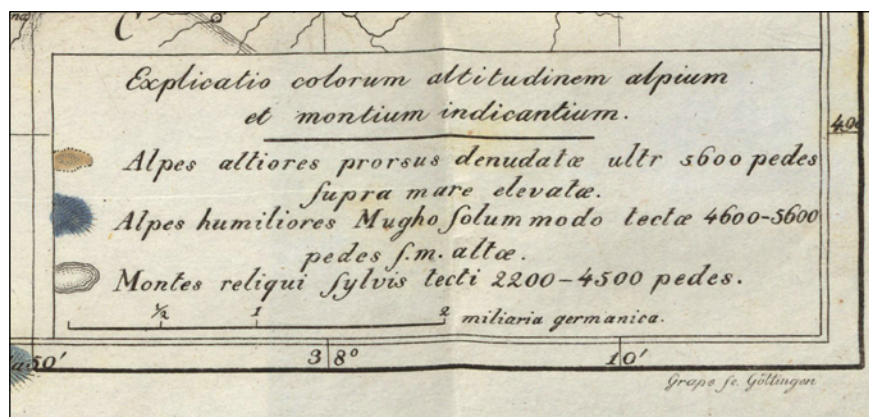 Explicatio colorum altitudinem alpium
et montium indicantium.
Alpes altiores prorsus denudatæ ultr 5600 pedes
ſupra mare elevatæ.
Alpes humiliores Mugho ſolummodo tectæ 4600-5600
pedes ſ.m. altæ.
Montes reliqui ſylvis tecti 2200-4500 pedes.
½ 1 2 miliaria germanica.
50' 38° 10'
Grape ſc. Göttingen